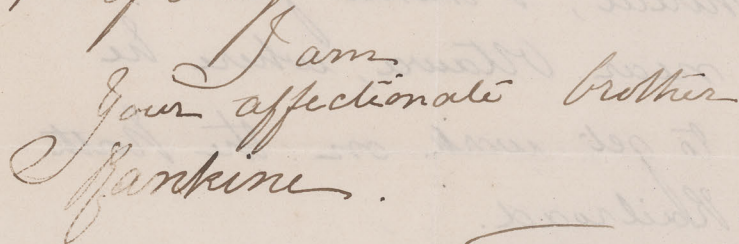 I am
Your affectionate brother
Rankine.